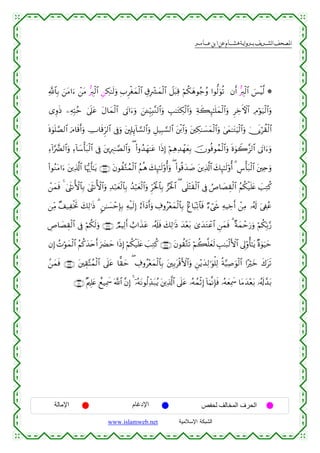 المصحف الشريف برواية هشام عن ابن عامر
۞ لَّيْسَ ٱلْبِرُّ أَن تُوَلُّوا۟ وُجُوهَكُمْ قِبَلَ ٱلْمَشْرِقِ وَٱلْمَغْرِبِ وَلَٰكِنَّ ٱلْبِرَّ مَنْ ءَامَنَ بِٱللَّهِ
وَٱلْيَوْمِ ٱلْءَاخِرِ وَٱلْمَلَٰٓئِكَةِ وَٱلْكِتَٰبِ وَٱلنَّبِيِّـۧنَ وَءَاتَى ٱلْمَالَ عَلَىٰ حُبِّهِۦ ذَوِى
ٱلْقُرْبَىٰ وَٱلْيَتَٰمَىٰ وَٱلْمَسَٰكِينَ وَٱبْنَ ٱلسَّبِيلِ وَٱلسَّآئِلِينَ وَفِى ٱلرِّقَابِ وَأَقَامَ ٱلصَّلَوٰةَ
وَءَاتَى ٱلزَّكَوٰةَ وَٱلْمُوفُونَ بِعَهْدِهِمْ إِذَا عَٰهَدُوا۟ وَٱلصَّٰبِرِينَ فِى ٱلْبَأْسَآءِ وَٱلضَّرَّآءِ
وَحِينَ ٱلْبَأْسِ أُو۟لَٰٓئِكَ ٱلَّذِينَ صَدَقُوا۟ وَأُو۟لَٰٓئِكَ هُمُ ٱلْمُتَّقُونَ يَٰٓأَيُّهَا ٱلَّذِينَ ءَامَنُوا۟
كُتِبَ عَلَيْكُمُ ٱلْقِصَاصُ فِى ٱلْقَتْلَى ٱلْحُرُّ بِٱلْحُرِّ وَٱلْعَبْدُ بِٱلْعَبْدِ وَٱلْأُنثَىٰ بِٱلْأُنثَىٰ فَمَنْ
عُفِىَ لَهُۥ مِنْ أَخِيهِ شَىْءٌ فَٱتِّبَاعٌۢ بِٱلْمَعْرُوفِ وَأَدَآءٌ إِلَيْهِ بِإِحْسَٰنٍ ذَٰلِكَ تَخْفِيفٌ مِّن
رَّبِّكُمْ وَرَحْمَةٌ فَمَنِ ٱعْتَدَىٰ بَعْدَ ذَٰلِكَ فَلَهُۥ عَذَابٌ أَلِيمٌ وَلَكُمْ فِى ٱلْقِصَاصِ
حَيَوٰةٌ يَٰٓأُو۟لِى ٱلْأَلْبَٰبِ لَعَلَّكُمْ تَتَّقُونَ كُتِبَ عَلَيْكُمْ إِذَا حَضَرَ أَحَدَكُمُ ٱلْمَوْتُ إِن
تَرَكَ خَيْرًا ٱلْوَصِيَّةُ لِلْوَٰلِدَيْنِ وَٱلْأَقْرَبِينَ بِٱلْمَعْرُوفِ حَقًّا عَلَى ٱلْمُتَّقِينَ فَمَنۢ
بَدَّلَهُۥ بَعْدَمَا سَمِعَهُۥ فَإِنَّمَآ إِثْمُهُۥ عَلَى ٱلَّذِينَ يُبَدِّلُونَهُۥٓ إِنَّ ٱللَّهَ سَمِيعٌ عَلِيمٌ
الحرف المخالف لحفص الإدغام الإمالة
www.islamweb.net الشبكة الإسلامية